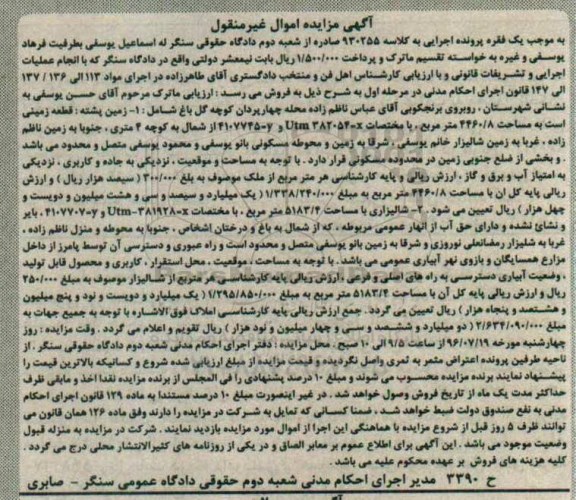 آگهی مزایده اموال غیرمنقول
به موجب یک فقره پرونده اجرایی به کلاسه ۹۳۰۲۵۵ صادره از شعبه دوم دادگاه حقوقی سنگر له اسماعیل یوسفی بطرفیت فرهاد
یوسفی و غیره به خواسته تقسیم ماترک و پرداخت ۱/۵۰۰/۰۰۰ ریال بابت نیمعشر دولتی واقع در دادگاه سنگر که با انجام عملیات
اجرایی و تشریفات قانونی و با ارزیابی کارشناس اهل فن و منتخب دادگستری آقای طاهرزاده در اجرای مواد ۱۱۳ الی ۱۳۶ / ۱۳۷
الی ۱۴۷ قانون اجرای احکام مدنی در مرحله اول به شرح ذیل به فروش می رسد : ارزیابی ماترک مرحوم آقای حسن یوسفی به
نشانی شهرستان ، روبروی برنجکوبی آقای عباس ناظم زاده محله چهارپردان کوچه گل باغ شامل : ۱- زمین پشته : قطعه زمینی
است به مساحت ۴۴۶۰/۸ متر مربع ، با مختصات Utm ۳۸۲۰۵۴-x و ۴۱۰۷۷۴۵-y از شمال به کوچه ۴ متری ، جنوبا به زمین ناظم
زاده ، غربا به زمین شالیزار خانم یوسفی ، شرقا به زمین و محوطه مسکونی بانو یوسفی و محمود یوسفی متصل و محدود می باشد
. و بخشی از ضلع جنوبی زمین در محدوده مسکونی قرار دارد . با توجه به مساحت و موقعیت ، نزدیکی به جاده و کاربری ، نزدیکی
به امتیاز آب و برق و گاز ، ارزش ریالی و پایه کارشناسی هر متر مربع از ملک موصوف به بلغ ۳۰۰/۰۰۰ ( سیصد هزار ریال ) و ارزش
ریالی پایه کل ان با مساحت ۴۴۶۰/۸ متر مربع به مبلغ ۱/۳۳۸/۲۴۰/۰۰۰ ( یک میلیارد و سیصد و سی و هشت میلیون و دویست و
چهل هزار ) ریال تعیین می شود . ۲- شالیزاری با مساحت ۵۱۸۳/۴ متر مربع ، با مختصات Utm-۳۸۱۹۲۸-x و ۴۱۰۷۷۰۷-y ، بایر
و نشائ نشده و دارای حق آب از انهار عمومی مربوطه ، که از شمال به باغ و درختان اشخاص ، جنوبا به محوطه و منزل ناظم زاده ،
غربا به شلیزار رمضانعلی نوروزی و شرقا به زمین بانو یوسفی متصل و محدود است و راه عبوری و دسترسی آن توسط پامرز از داخل
مزارع همسایگان و بازوی نهر آبیاری عمومی می باشد . با توجه به مساحت ، موقعیت ، محل استقرار ، کاربری و محصول قابل تولید
، وضعیت آبیاری دسترسی به راه های اصلی و فرعی ، ارزش ریالی پایه کارشناسی هر متر مربع از شالیزار موصوف به مبلغ ۲۵۰/۰۰۰
ریال و ارزش ریالی پایه کل آن با مساحت ۵۱۸۳/۴ متر مربع به مبلغ ۱/۲۹۵/۸۵۰/۰۰۰ ( یک میلیارد و دویست و نود و پنج میلیون
و هشتصد و پنجاه هزار ) ریال تعیین می گردد . جمع ارزش ریالی پایه کارشناسی املاک فوق الاشاره با توجه به جمیع جهات به
مبلغ ۲/۶۳۴/۰۹۰/۰۰۰ ( دو میلیارد و ششصد و سی و چهار میلیون و نود هزار ) ریال تقویم و اعلام می گردد . وقت مزایده : روز
چهارشنبه مورخه ۹۶/۰۷/۱۹ از ساعت ۹/۵ الی ۱۰ صبح . محل مزایده : دفتر اجرای احکام مدنی شعبه دوم دادگاه حقوقی سنگر . از
ناحیه طرفین پرونده اعتراض مثمر به ثمری واصل نگردیده و قیمت مزایده از مبلغ ارزیابی شده شروع و کسانیکه بالاترین قیمت را
پیشنهاد نمایند برنده مزایده محسوب می شوند و مبلغ ۱۰ درصد پشنهادی را فی المجلس از برنده مزایده نقدا اخذ و مابقی ظرف
حداکثر مدت یک ماه از تاریخ فروش وصول خواهد شد . در غیر اینصورت مبلغ ۱۰ درصد مستندا به ماده ۱۲۹ قانون اجرای احکام
مدنی به نفع صندوق دولت ضبط خواهد شد ، ضمنا کسانی که تمایل به شرکت در مزایده را دارند وفق ماده ۱۲۶ همان قانون می
توانند ظرف ۵ روز قبل از شروع مزایده با هماهنگی این اجرا از اموال مورد مزایده بازدید نمایند . شرکت در مزایده به منزله قبول
وضعیت موجود می باشد . این آگهی برای اطلاع عموم بر معابر الصاق و در یکی از روزنامه های کثیرالانتشار محلی درج می گردد .
کلیه هزینه های فروش بر عهده محکوم علیه می باشد .
ح ۳۳۹۰ مدیر اجرای احکام مدنی شعبه دوم حقوقی دادگاه عمومی سنگر – صابری